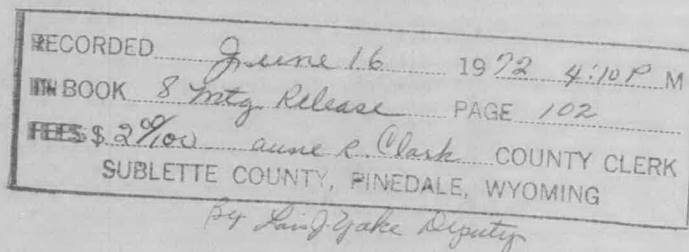 RECORDED June 16 1972 4:10 P M
IN BOOK 8 Mtg Release PAGE 102
FEES $ 2 00/00 Anne R. Clark COUNTY CLERK
SUBLETTE COUNTY, PINEDALE, WYOMING
By Lois J. Yake Deputy